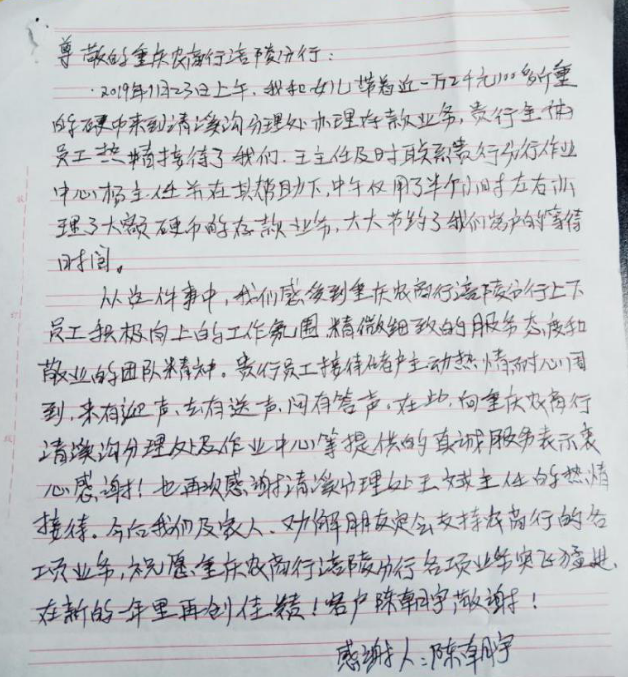 尊敬的重庆农商行涪陵分行：
2019年11月23日上午，我和女儿带着近一万2千元100多斤重
的硬币来到清溪沟分理处办理存款业务，贵行全体
员工热情接待了我们。王主任及时联系贵行分行作业
中心杨主任并在其帮助下，中午仅用了半个小时左右办
理了大额硬币的存款业务，大大节约了我们客户的等待
时间。
从这件事中，我们感受到重庆农商行涪陵分行上下
员工积极向上的工作氛围精微细致的服务态度和
敬业的团队精神。贵行员工接待储户主动热情耐心周
到，来有迎声，去有送声，问有答声，在此，向重庆农商行
清溪沟分理处及作业中心等提供的真诚服务表示衷
心感谢！也再次感谢清溪分理处王斌主任的热情
接待。今后我们及家人、劝解朋友定会支持农商行的各
项业务，祝愿重庆农商行涪陵分行各项业务突飞猛进，
在新的一年里再创佳绩！客户陈朝宇敬谢！
感谢人：陈朝宇